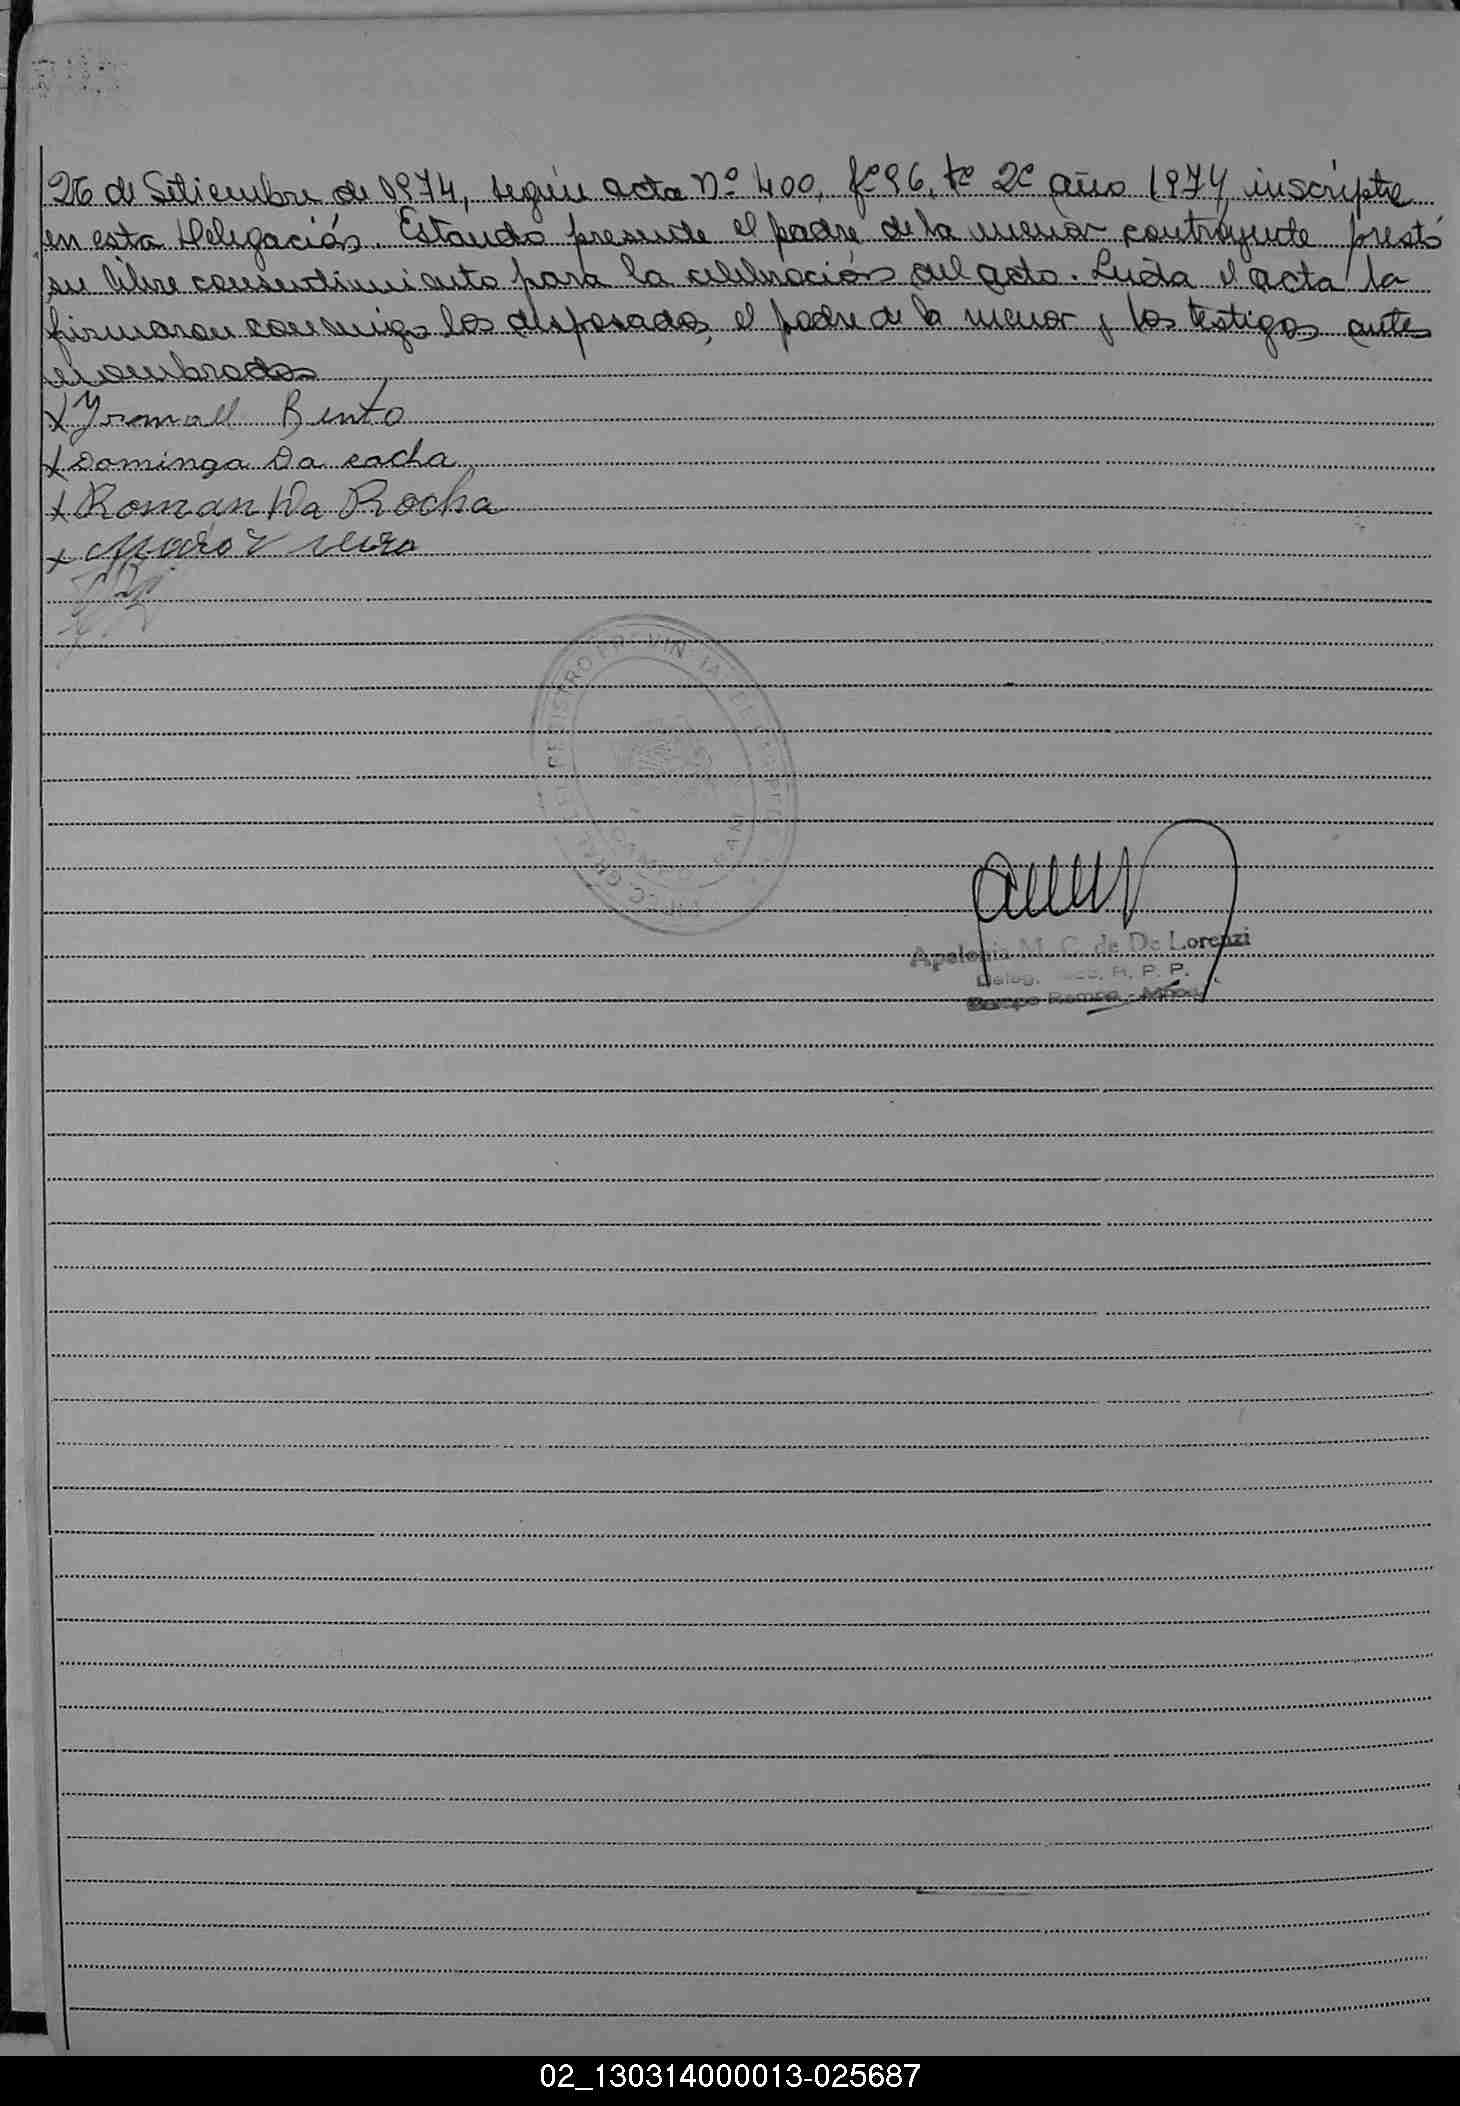 26 de Setiembre de 1974, según acta Nº 400, fº 96, tº 2º año 1974, inscripta
en esta Delegación. Estando presente el padre de la menor contrayente prestó
su libre consentimiento para la celebración del acto. Leída el acta la
firmaron conmigo los desposados, el padre de la menor y los testigos ante
nombrados
x Bento
x Dominga Da rocha
x Roman Da Rocha
x
REGISTRO PROVINCIAL DE
Apolonia M. C. de De Lorenzi
Deleg. R. P. P.
Campo Ramon - Mnes.
02_130314000013-025687